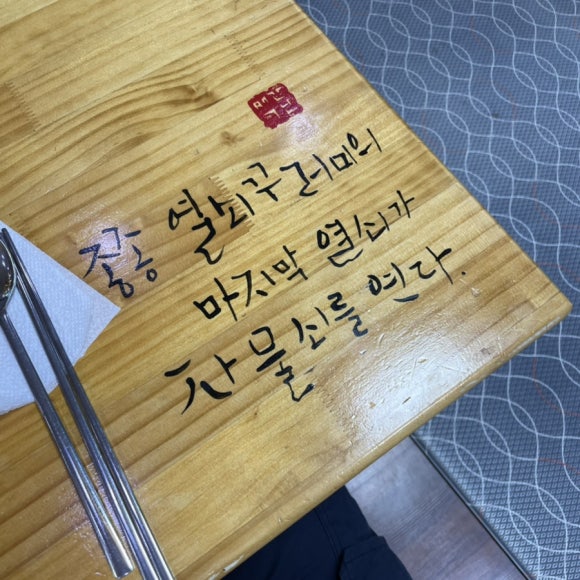 종종 열쇠꾸러미의
마지막 열쇠가
자물쇠를 연다.